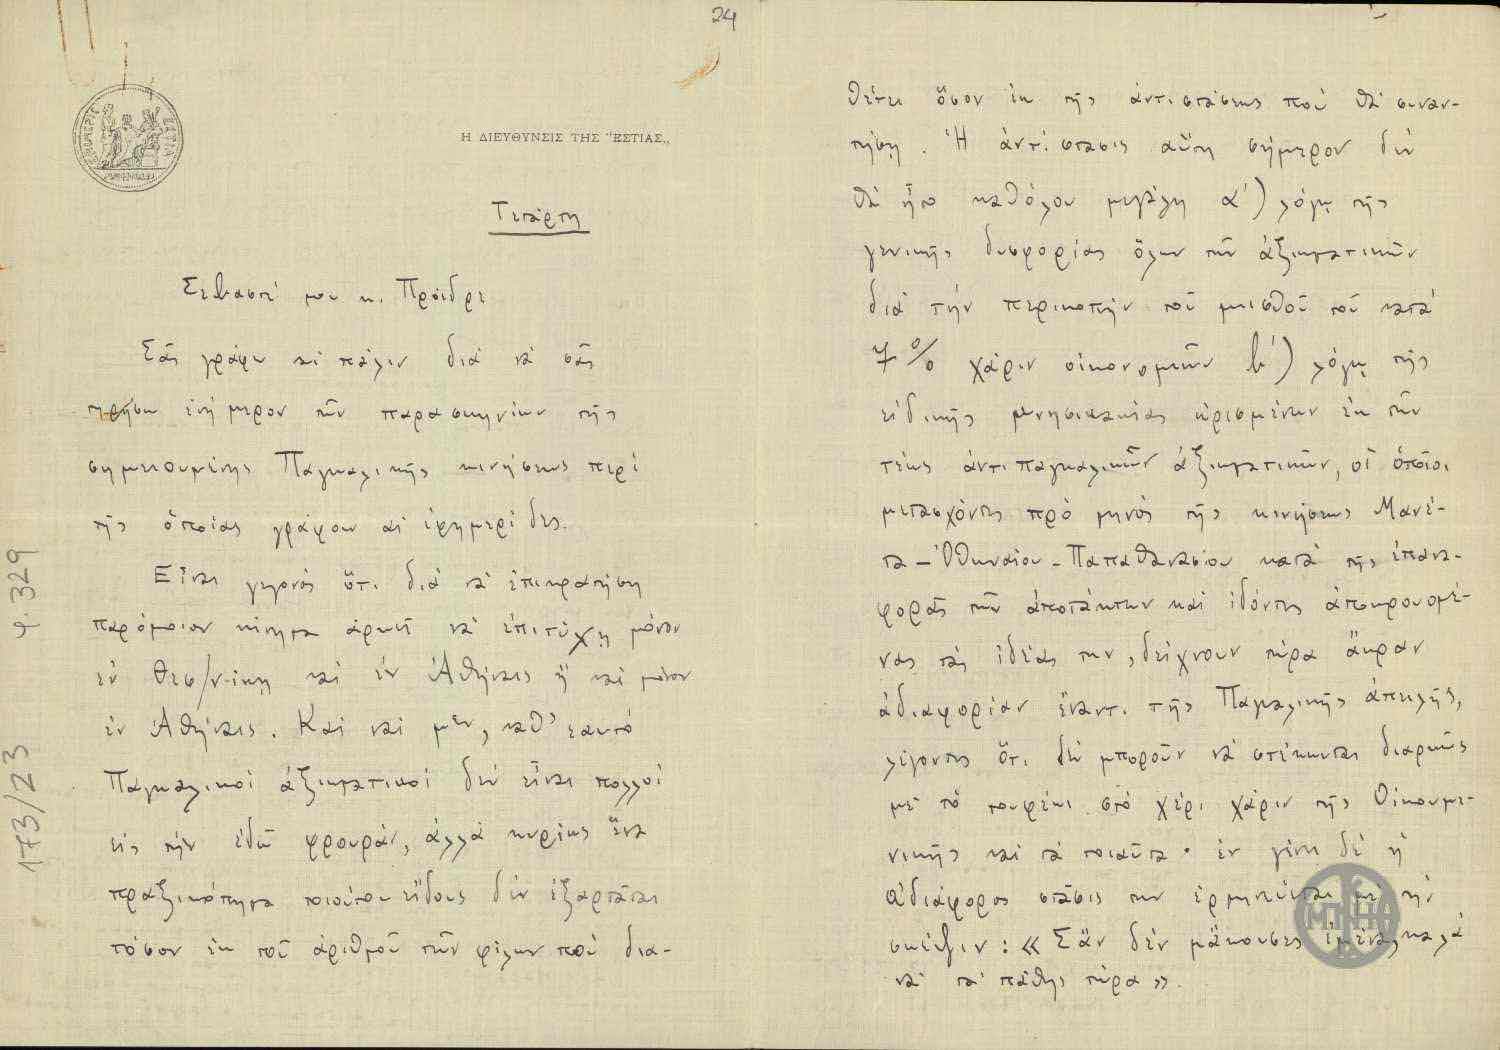 24
Η ΔΙΕΥΘΥΝΣΙΣ ΤΗΣ "ΕΣΤΙΑΣ„
Τετάρτη
Σεβαστέ μου κ. Πρόεδρε
Σᾶς γράφω καὶ πάλιν διὰ νὰ σᾶς
τηρήσω ἐνήμερον τῶν παρασκηνίων τῆς
σημειουμένης Παγκαλικῆς κινήσεως περὶ
τῆς ὁποίας γράφουν αἱ ἐφημερίδες.
Εἶναι γεγονὸς ὅτι διὰ νὰ ἐπικρατήσῃ
παρόμοιον κίνημα ἀρκεῖ νὰ ἐπιτύχῃ μόνον
ἐν Θεσ/νίκῃ καὶ ἐν Ἀθήναις ἢ καὶ μόνον
ἐν Ἀθήναις. Καὶ ναὶ μὲν, καθ' ἑαυτὸ
Παγκαλικοὶ ἀξιωματικοὶ δὲν εἶναι πολλοὶ
εἰς τὴν ἐδῶ φρουράν, ἀλλὰ κυρίως ἕνα
πραξικόπημα τοιούτου εἴδους δὲν ἐξαρτᾶται
τόσον ἐκ τοῦ ἀριθμοῦ τῶν φίλων ποὺ δια-
θέτει ὅσον ἐκ τῆς ἀντιστάσεως ποὺ θὰ συναν-
τήσῃ. Ἡ ἀντίστασις αὕτη σήμερον δὲν
θὰ ἦτο καθόλου μεγάλη α') λόγῳ τῆς
γενικῆς δυσφορίας ὅλων τῶν ἀξιωματικῶν
διὰ τὴν περικοπὴν τοῦ μισθοῦ του κατὰ
7% χάριν οἰκονομιῶν β') λόγῳ τῆς
εἰδικῆς μνησικακίας ὡρισμένων ἐκ τῶν
τέως ἀντιπαγκαλικῶν ἀξιωματικῶν, οἱ ὁποῖοι
μετασχόντες πρὸ μηνὸς τῆς κινήσεως Μανέ-
τα - Ὀθωναίου - Παπαθανασίου κατὰ τῆς ἐπανα-
φορᾶς τῶν ἀποτάκτων καὶ ἰδόντες ἀποκρουομέ-
νας τὰς ἰδέας των, δείχνουν τώρα ἄκραν
ἀδιαφορίαν ἔναντι τῆς Παγκαλικῆς ἀπειλῆς,
λέγοντες ὅτι δὲν μποροῦν νὰ στέκωνται διαρκῶς
μὲ τὸ τουφέκι στὸ χέρι χάριν τῆς Οἰκουμε-
νικῆς καὶ τὰ τοιαῦτα· ἐν γένει δὲ ἡ
ἀδιάφορος στάσις των ἑρμηνεύεται μὲ τὴν
σκέψιν: «Σὰν δὲν μ' ἄκουσες ἐμένα, καλὰ
νὰ τὰ πάθῃς τώρα».
173/23 φ. 329